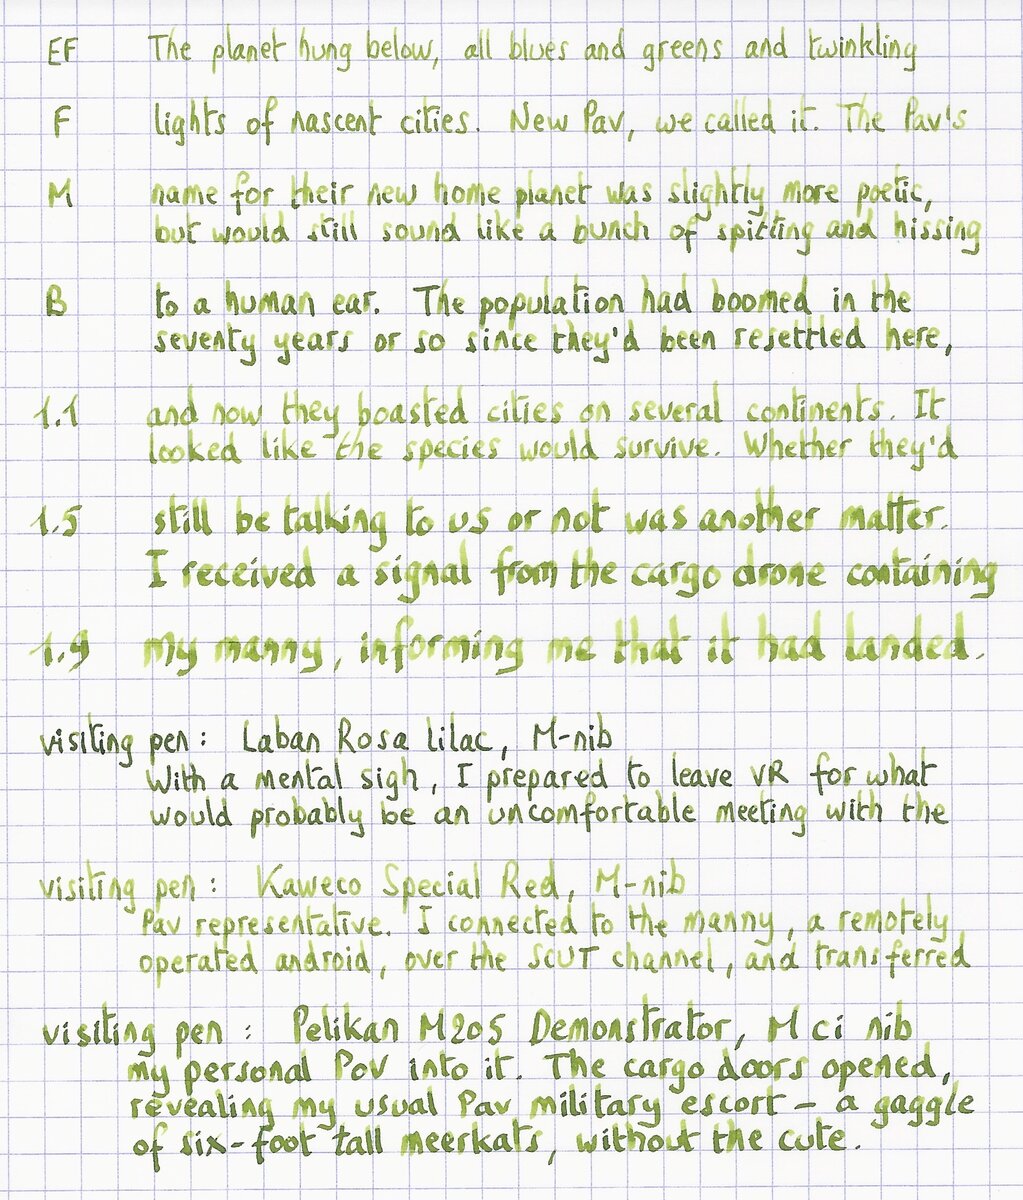 EF The planet hung below, all blues and greens and twinkling
F lights of nascent cities. New Pav, we called it. The Pav's
M name for their new home planet was slightly more poetic,
but would still sound like a bunch of spitting and hissing
B to a human ear. The population had boomed in the
seventy years or so since they'd been resettled here,
1.1 and now they boasted cities on several continents. It
looked like the species would survive. Whether they'd
1.5 still be talking to us or not was another matter.
I received a signal from the cargo drone containing
1.9 my manny, informing me that it had landed.
visiting pen: Laban Rosa Lilac, M-nib
With a mental sigh, I prepared to leave VR for what
would probably be an uncomfortable meeting with the
visiting pen: Kaweco Special Red, M-nib
Pav representative. I connected to the manny, a remotely
operated android, over the SCUT channel, and transferred
visiting pen: Pelikan M205 Demonstrator, M ci nib
my personal PoV into it. The cargo doors opened,
revealing my usual Pav military escort – a gaggle
of six-foot tall meerkats, without the cute.